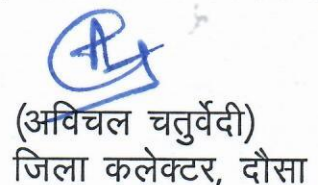 (अविचल चतुर्वेदी)
जिला कलेक्टर, दौसा